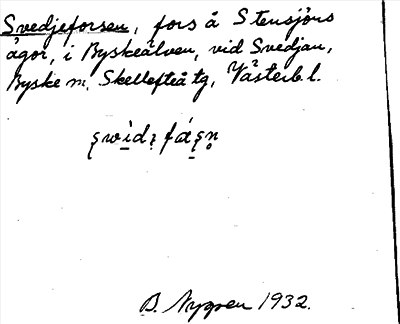 Svedjeforsen, fors å Stensjörs
ägor, i Byskeälven, vid Svedjan,
Byske sn, Skellefteå tg, Västerb. l.
B. Nygren 1932.